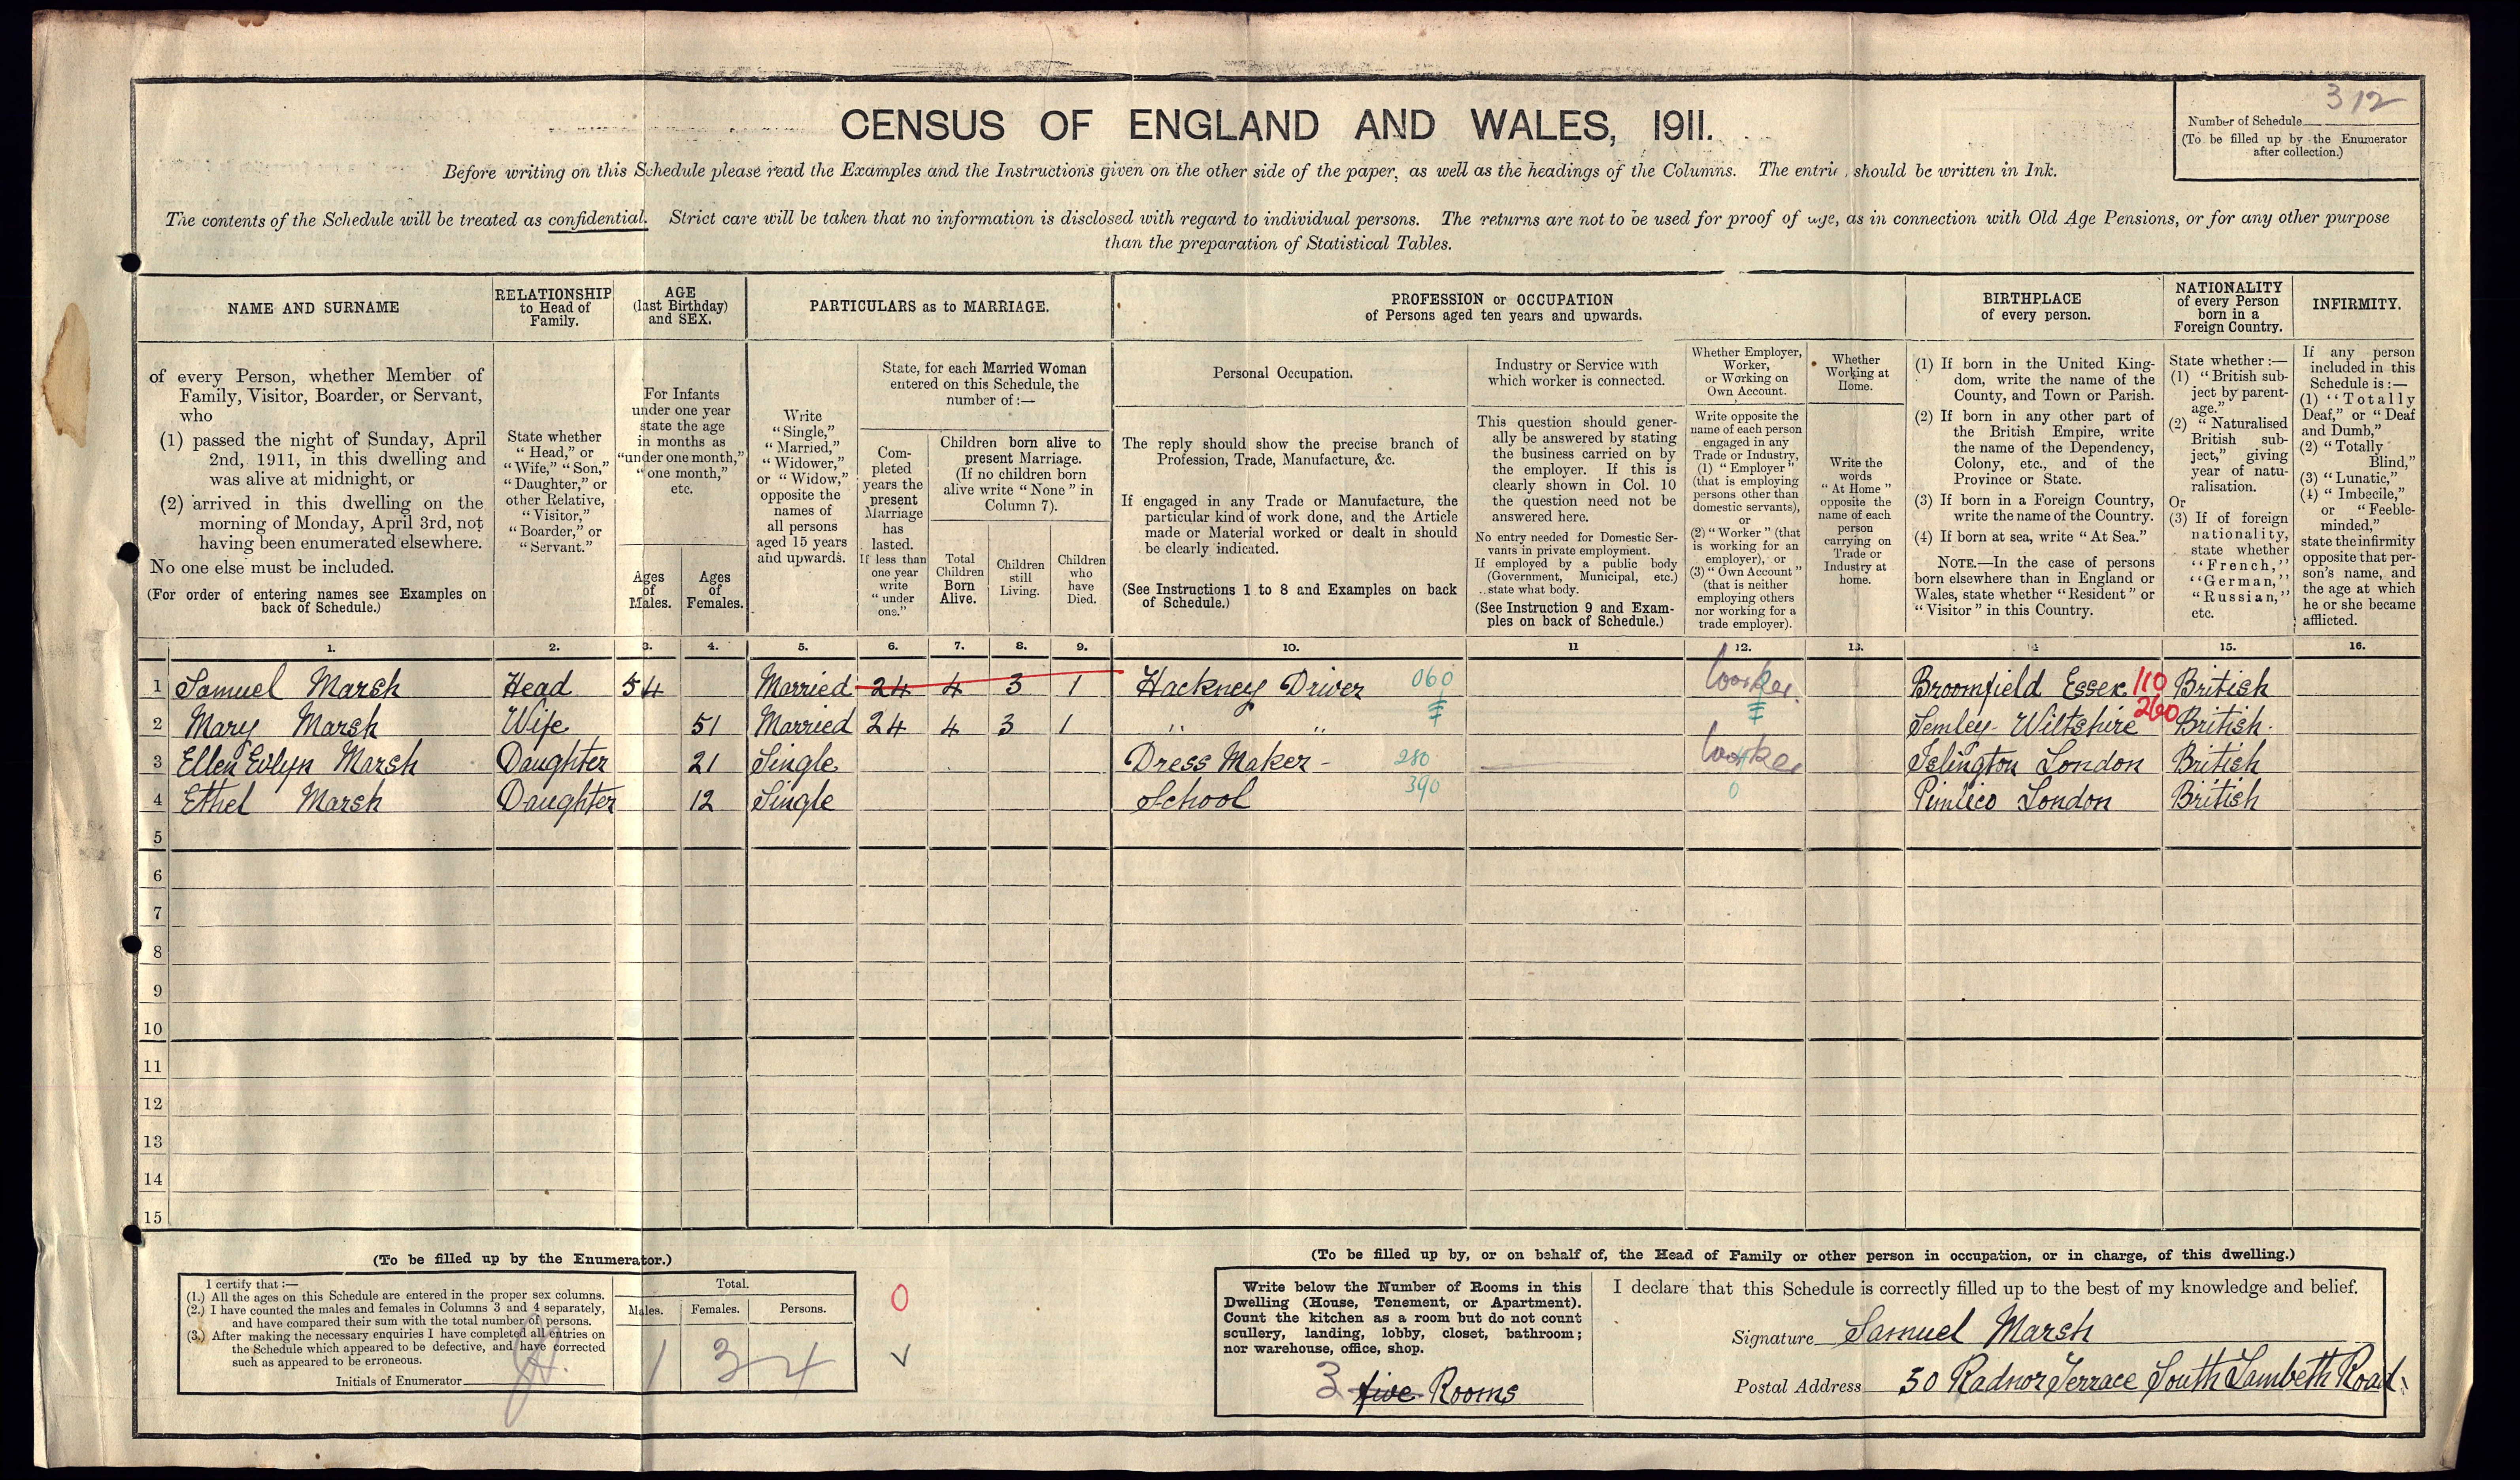 CENSUS OF ENGLAND AND WALES, 1911.
312
Number of Schedule
(To be filled up by the Enumerator
after collection.)
Before writing on this Schedule please read the Examples and the Instructions given on the other side of the paper, as well as the headings of the Columns. The entrie should be written in Ink.
The contents of the Schedule will be treated as confidential. Strict care will be taken that no information is disclosed with regard to individual persons. The returns are not to be used for proof of age, as in connection with Old Age Pensions, or for any other purpose
than the preparation of Statistical Tables.
NAME AND SURNAME
of every Person, whether Member of
Family, Visitor, Boarder, or Servant,
who
(1) passed the night of Sunday, April
2nd, 1911, in this dwelling and
was alive at midnight, or
(2) arrived in this dwelling on the
morning of Monday, April 3rd, not
having been enumerated elsewhere.
No one else must be included.
(For order of entering names see Examples on
back of Schedule.)
RELATIONSHIP
to Head of
Family.
State whether
"Head," or
"Wife," "Son,"
"Daughter," or
other Relative,
"Visitor,"
"Boarder," or
"Servant."
AGE
(last Birthday)
and SEX.
For Infants
under one year
state the age
in months as
"under one month,"
"one month,"
etc.
Ages
of
Males.
Ages
of
Females.
PARTICULARS as to MARRIAGE.
Write
"Single,"
"Married,"
"Widower,"
or "Widow,"
opposite the
names of
all persons
aged 15 years
and upwards.
State, for each Married Woman
entered on this Schedule, the
number of:—
Com-
pleted
years the
present
Marriage
has
lasted.
If less than
one year
write
"under
one."
Children born alive to
present Marriage.
(If no children born
alive write "None" in
Column 7).
Total
Children
Born
Alive.
Children
still
Living.
Children
who
have
Died.
PROFESSION or OCCUPATION
of Persons aged ten years and upwards.
Personal Occupation.
The reply should show the precise branch of
Profession, Trade, Manufacture, &c.
If engaged in any Trade or Manufacture, the
particular kind of work done, and the Article
made or Material worked or dealt in should
be clearly indicated.
(See Instructions 1 to 8 and Examples on back
of Schedule.)
Industry or Service with
which worker is connected.
This question should gener-
ally be answered by stating
the business carried on by
the employer. If this is
clearly shown in Col. 10
the question need not be
answered here.
No entry needed for Domestic Ser-
vants in private employment.
If employed by a public body
(Government, Municipal, etc.)
state what body.
(See Instruction 9 and Exam-
ples on back of Schedule.)
Whether Employer,
Worker,
or Working on
Own Account.
Write opposite the
name of each person
engaged in any
Trade or Industry,
(1) "Employer"
(that is employing
persons other than
domestic servants),
or
(2) "Worker" (that
is working for an
employer), or
(3) "Own Account"
(that is neither
employing others
nor working for a
trade employer).
Whether
Working at
Home.
Write the
words
"At Home"
opposite the
name of each
person
carrying on
Trade or
Industry at
home.
BIRTHPLACE
of every person.
(1) If born in the United King-
dom, write the name of the
County, and Town or Parish.
(2) If born in any other part of
the British Empire, write
the name of the Dependency,
Colony, etc., and of the
Province or State.
(3) If born in a Foreign Country,
write the name of the Country.
(4) If born at sea, write "At Sea."
NOTE.—In the case of persons
born elsewhere than in England or
Wales, state whether "Resident" or
"Visitor" in this Country.
NATIONALITY
of every Person
born in a
Foreign Country.
State whether:—
(1) "British sub-
ject by parent-
age."
(2) "Naturalised
British sub-
ject," giving
year of natu-
ralisation.
Or
(3) If of foreign
nationality,
state whether
"French,"
"German,"
"Russian,"
etc.
INFIRMITY.
If any person
included in this
Schedule is:—
(1) "Totally
Deaf," or "Deaf
and Dumb,"
(2) "Totally
Blind,"
(3) "Lunatic,"
(4) "Imbecile,"
or "Feeble-
minded,"
state the infirmity
opposite that per-
son's name, and
the age at which
he or she became
afflicted.
1. 2. 3. 4. 5. 6. 7. 8. 9. 10. 11 12. 13. 14 15. 16.
1 Samuel Marsh Head 54 Married 24 4 3 1 Hackney Driver 060 Worker Broomfield Essex 110 British
2 Mary Marsh Wife 51 Married 24 4 3 1 " " Semley Wiltshire 260 British.
3 Ellen Evlyn Marsh Daughter 21 Single Dress Maker - 280 Worker Islington London British
4 Ethel Marsh Daughter 12 Single School 390 0 Pimlico London British
5
6
7
8
9
10
11
12
13
14
15
(To be filled up by the Enumerator.)
I certify that:—
(1.) All the ages on this Schedule are entered in the proper sex columns.
(2.) I have counted the males and females in Columns 3 and 4 separately,
and have compared their sum with the total number of persons.
(3.) After making the necessary enquiries I have completed all entries on
the Schedule which appeared to be defective, and have corrected
such as appeared to be erroneous.
Initials of Enumerator
Total.
Males. Females. Persons.
1 3 4
0
(To be filled up by, or on behalf of, the Head of Family or other person in occupation, or in charge, of this dwelling.)
Write below the Number of Rooms in this
Dwelling (House, Tenement, or Apartment).
Count the kitchen as a room but do not count
scullery, landing, lobby, closet, bathroom;
nor warehouse, office, shop.
3 five Rooms
I declare that this Schedule is correctly filled up to the best of my knowledge and belief.
Signature Samuel Marsh
Postal Address 50 Radnor Terrace South Lambeth Road